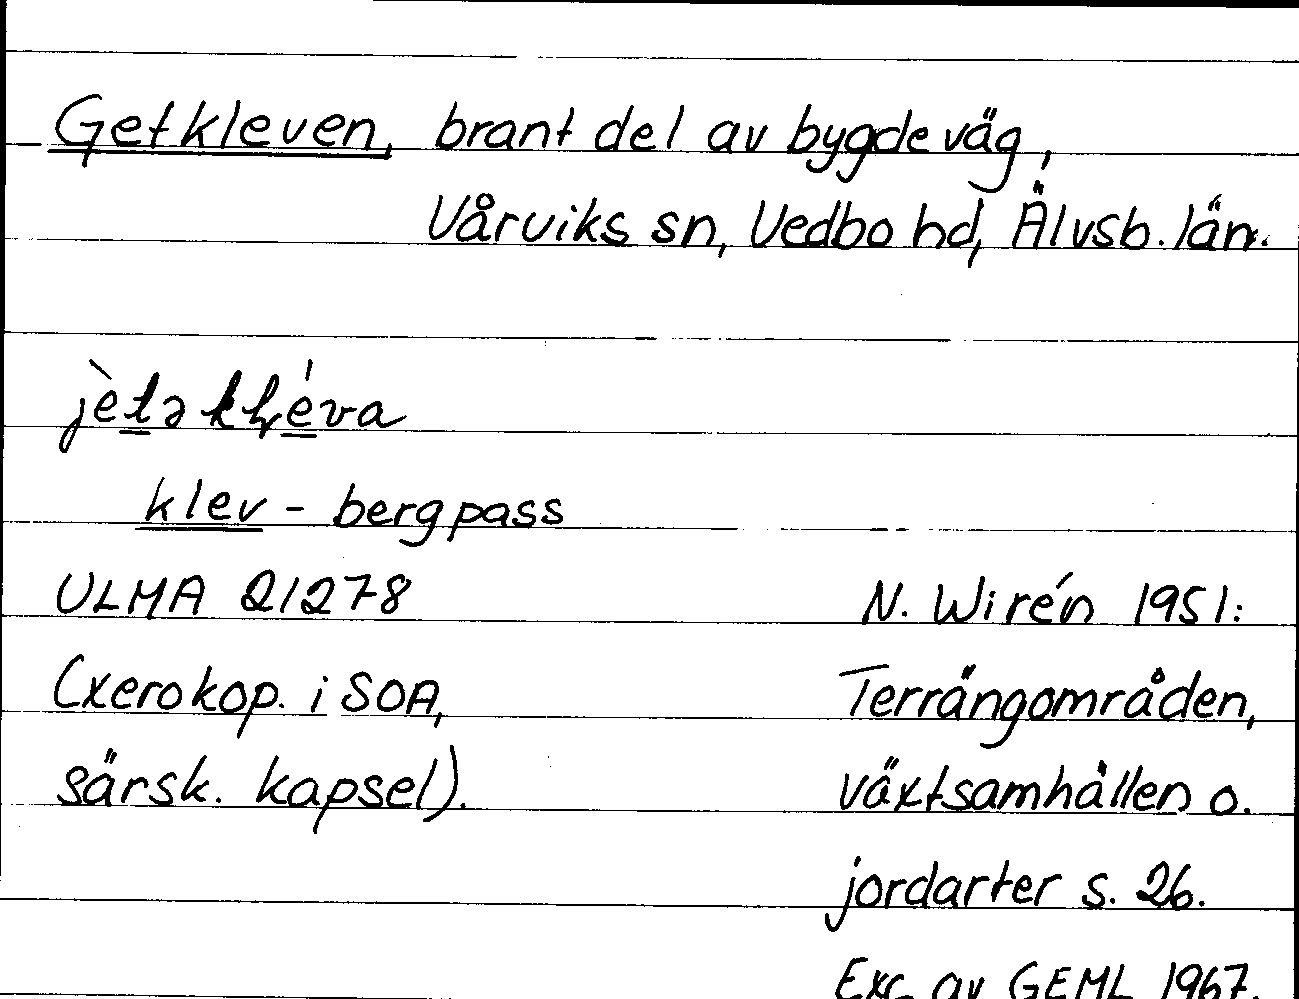 Getkleven, brant del av bygdeväg,
Vårviks sn, Vedbo hd, Älvsb. län.
jètəkļéva
klev - bergpass
ULMA 21278
(xerokop. i SOA,
särsk. kapsel).
N. Wirén 1951:
Terrängområden,
växtsamhällen o.
jordarter s. 26.
Exc. av GEML 1967.